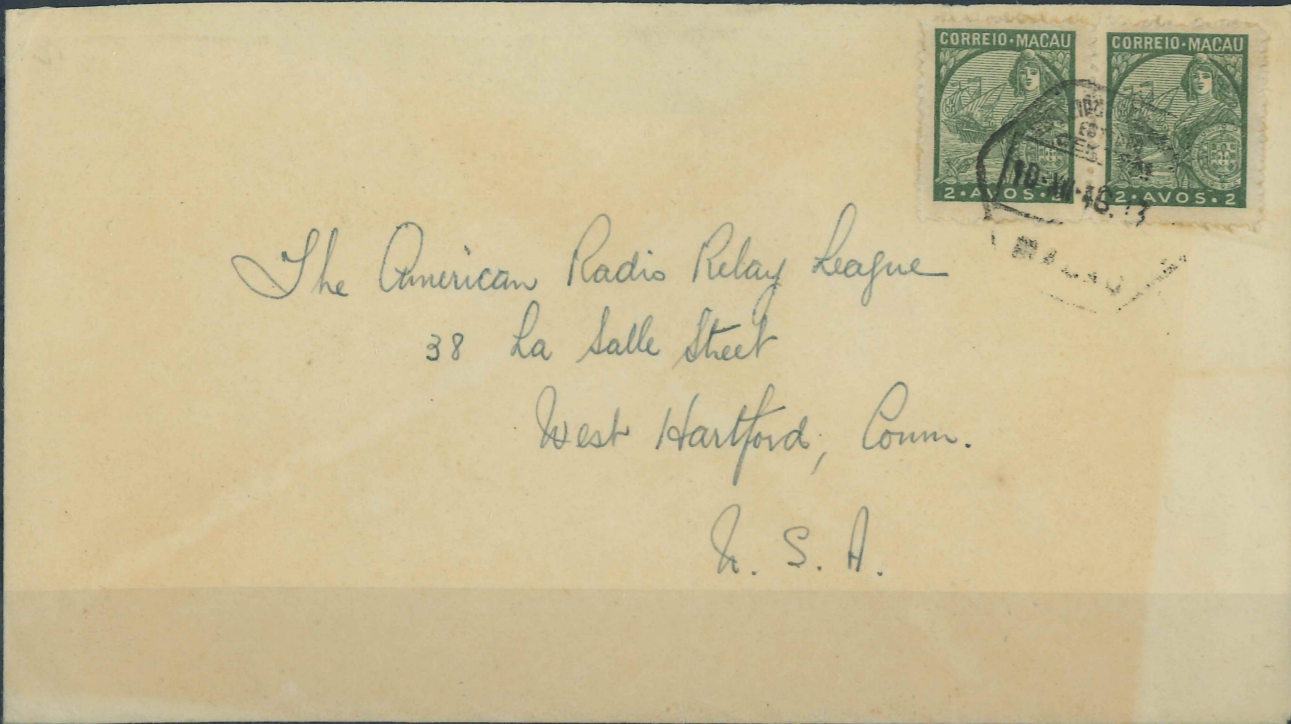 CORREIO·MACAU
2·AVOS·2
CORREIO·MACAU
2·AVOS·2
MACAU
The American Radio Relay League
38 La Salle Street
West Hartford, Conn.
U. S. A.